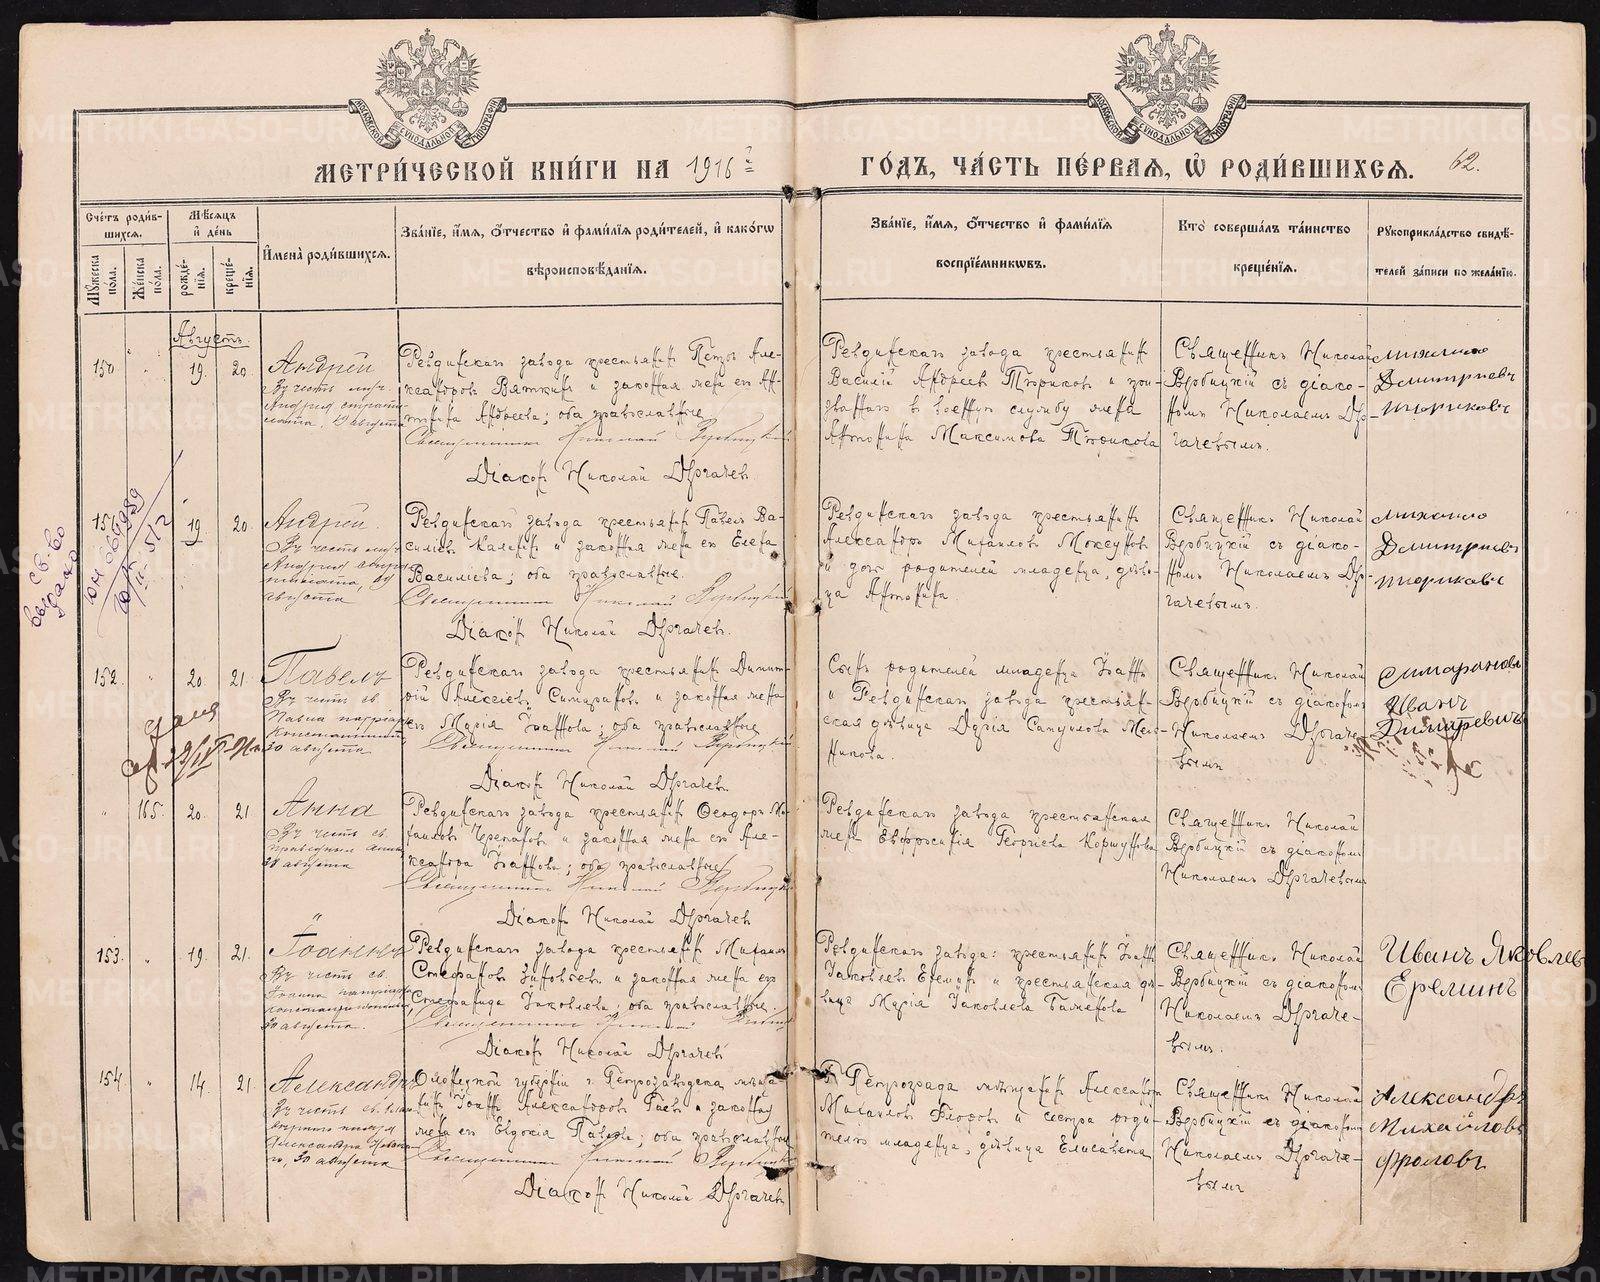 МЕТРИ́ЧЕСКОЙ КНИ́ГИ НА 1916 ГО́ДЪ, ЧА́СТЬ ПЕ́РВАЯ, Ѡ РОДИ́ВШИХСЯ. 62.
Счетъ роди́вшихся.
Му́жеска по́ла.
Же́нска по́ла.
Мѣ́сяцъ и де́нь
рожде́нїя.
креще́нїя.
Имена̀ роди́вшихся.
Зва́нїе, и́мя, ѻ́тчество и фами́лїя роди́телей, и како́гѡ
вѣроисповѣ́данїя.
Зва́нїе, и́мя, ѻ́тчество и фами́лїя
воспрїе́мникѡвъ.
Кто̀ соверша́лъ та́инство
креще́нїя.
Рꙋкоприкла́дство свидѣ́-
телей за́писи по жела́нїю.
Августъ
150 19. 20.
Андрей
Въ честь муч.
Андрея стратилата, 19 августа
Ревдинскаго завода крестьянинъ Петръ Але-
ксандровъ Вяткинъ и законная жена его Ан-
тонина Андреева; оба православные
Священникъ Николай Вербицкій
Діаконъ Николай Дергачевъ.
Ревдинскаго завода крестьянинъ
Василій Андреевъ Тюриковъ и при-
званнаго в военную службу жена
Антонина Максимова Тюрикова
Священникъ Николай
Вербицкій съ діако-
номъ Николаемъ Дер-
гачевымъ.
Михаило
Дмитриевъ
Тюриковъ
151 19 20.
Андрей
Въ честь муч.
августа
Ревдинскаго завода крестьянинъ Павелъ Ва-
сильевъ и законная жена его Елена
Васильева; оба православные.
Священникъ Николай Вербицкій
Діаконъ Николай Дергачевъ.
Ревдинскаго завода крестьянинъ
Александръ Михаиловъ
и дочь родителей младенца, дѣви-
ца Антонина.
Священникъ Николай
Вербицкій съ діако-
номъ Николаемъ Дер-
гачевымъ.
Михаило
Дмитриевъ
Тюриковъ
152. 20. 21.
Павелъ
Въ честь св.
Павла патріарха
30 августа
Ревдинскаго завода крестьянинъ Димит-
рій Алексіевъ Симарановъ и законная жена
его Марія Іоаннова; оба православные
Священникъ Николай Вербицкій
Діаконъ Николай Дергачевъ.
Сынъ родителей младенца Іоаннъ
и Ревдинскаго завода крестьян-
ская дѣвица Дарія Самуилова Мел-
никова.
Священникъ Николай
Вербицкій съ діакономъ
Николаемъ Дергаче-
вымъ
Симарановъ
Иванъ
165. 20. 21
Анна
Въ честь св.
праведныя Анны
августа
Ревдинскаго завода крестьянинъ Ѳеодоръ Ми-
хаиловъ Черепановъ и законная жена его Але-
ксандра Іоаннова; оба православные
Священникъ Николай Вербицкій
Діаконъ Николай Дергачевъ
Ревдинскаго завода крестьянская
жена Евфросинія Георгіева Коршунова
Священникъ Николай
Вербицкій съ діакономъ
Николаемъ Дергачевымъ
153. 19. 21.
Іоаннъ
Въ честь св.
Іоанна патріарха
30 августа.
Ревдинскаго завода крестьянинъ Михаилъ
Стефановъ Зиновьевъ и законная жена его
Стефанида Іаковлева; оба православные.
Священникъ Николай
Діаконъ Николай Дергачевъ
Ревдинскаго завода: крестьянинъ Іоаннъ
Іаковлевъ Ереминъ и крестьянская дѣ-
вица Марія Іаковлева
Священникъ Николай
Вербицкій съ діакономъ
Николаемъ Дергаче-
вымъ.
Иванъ Яковлевъ
Ереминъ
154. 14. 21.
Александръ
Въ честь св.
Александра
30 августа
Олонецкой губерніи г. Петрозаводска мѣща-
нинъ Іоаннъ Александровъ и законная
жена его Евдокія Павлова; оба православные
Священникъ Николай Вербицкій
Діаконъ Николай Дергачевъ
Г. Петрограда мѣщанинъ Александръ
Михаиловъ Фроловъ и сестра роди-
телю младенца, дѣвица Елисавета
Священникъ Николай
Вербицкій съ діакономъ
Николаемъ Дергаче-
вымъ
Александръ
Михайловъ
Фроловъ